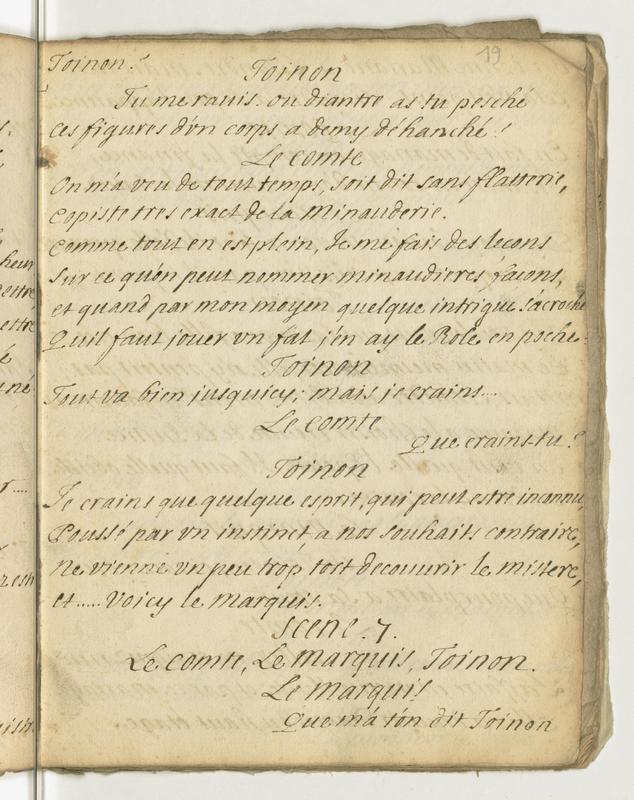 19
Toinon!
Toinon
Tu me ravis. ou diantre as tu pesché
Ces figures d'vn corps a demy déhanché!
Le Comte
On m'a veu de tout temps, soit dit sans flatterie,
Copiste tres exact de la Minauderie.
Comme tout en est plein, Je me fais des lecons
Sur ce qu'on peut nommer minaudieres facons,
et quand par mon moyen quelque intrigue s'acroche
Quil faut jouer vn fat j'en ay le Role en poche.
Toinon
Tout va bien jusquicy; mais je crains...
Le Comte
Que crains-tu?
Toinon
Je crains que quelque esprit, qui peut estre inconnu,
Poussé par vn instinct a nos souhaits contraire,
Ne vienne vn peu trop tost decouurir le mistere,
et..... Voicy le Marquis.
Scene .7.
Le Comte, Le Marquis, Toinon.
Le Marquis
Que m'a t'on dit Toinon